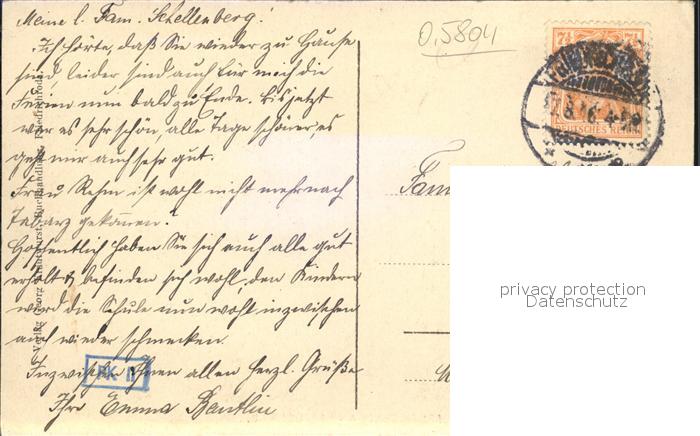 Meine l. Fam. Schellenberg!
Ich hörte, daß Sie wieder zu Hause
sind, leider sind auch für mich die
Ferien nun bald zu Ende. Bis jetzt
war es sehr schön, alle Tage schöner, es
geht mir auch sehr gut.
Frau Rehm ist wohl nicht mehr nach
Tabarz gekommen?
Hoffentlich haben Sie sich auch alle gut
erholt & befinden sich wohl, den Kindern
wird die Schule nun wohl inzwischen
auch wieder schmecken.
Inzwischen Ihnen allen herzl. Grüße
Ihre Emma Bentlin
0,5804
DEUTSCHES REICH
Fam
PK II
Verlag Georg Buchhandlung, Friedrichroda
privacy protection
Datenschutz